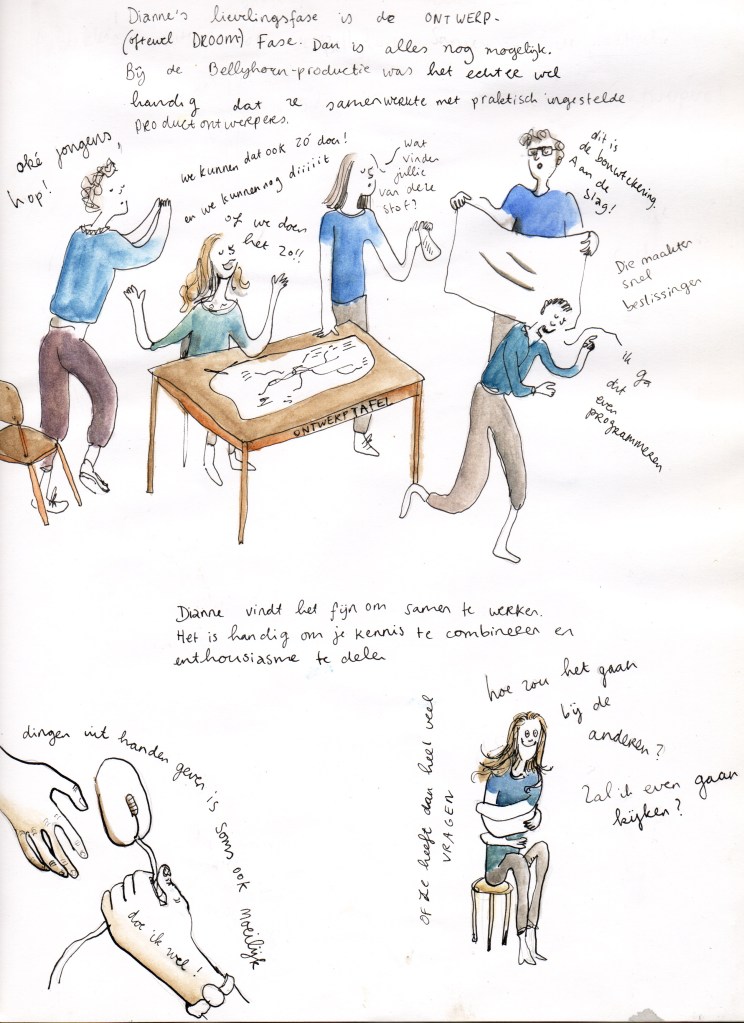 Dianne's lievelingsfase is de ONTWERP-
(oftewel DROOM) Fase. Dan is alles nog mogelijk.
Bij de Bellyhorn-productie was het echter wel
handig dat ze samenwerkte met praktisch ingestelde
productontwerpers.
oké jongens,
hop!
we kunnen dat ook zó doen!
en we kunnen nog diiiiit
of we doen
het zo!!
Wat
vinden
jullie
van deze
stof?
dit is
de bouwtekening.
Aan de
slag!
Die maakten
snel
beslissingen
ik ga
dit
even
programmeren
ONTWERPTAFEL
Dianne vindt het fijn om samen te werken.
Het is handig om je kennis te combineren en
enthousiasme te delen
dingen uit handen geven is soms ook moeilijk
doe ik wel!
OF ze heeft dan heel veel
VRAGEN
hoe zou het gaan
bij de
anderen?
Zal ik even gaan
kijken?